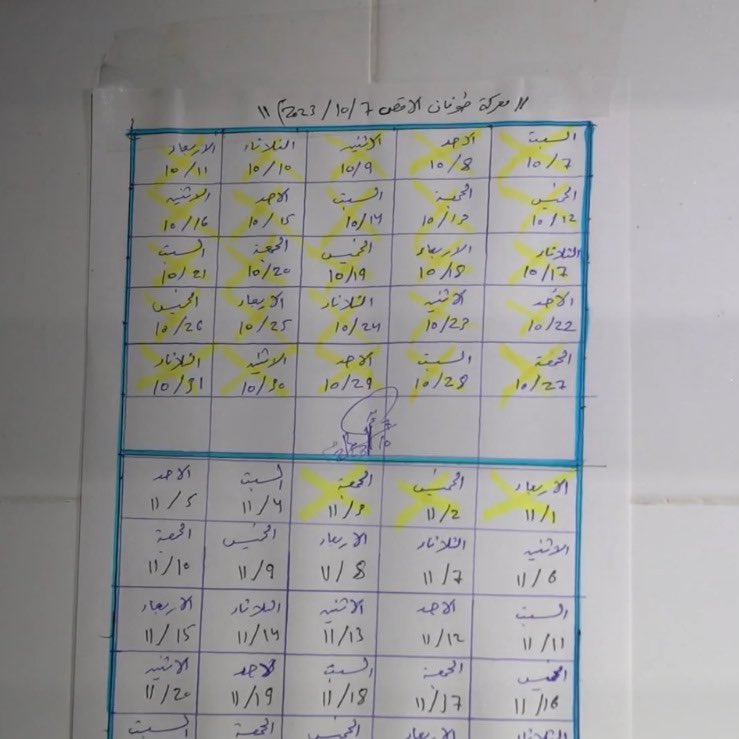 " معركة طوفان الاقصى 2023/10/7 "
السبت الاحد الاثنين الثلاثاء الاربعاء
10/7 10/8 10/9 10/10 10/11
الخميس الجمعة السبت الاحد الاثنين
10/12 10/13 10/14 10/15 10/16
الثلاثاء الاربعاء الخميس الجمعة السبت
10/17 10/18 10/19 10/20 10/21
الأحد الاثنين الثلاثاء الاربعاء الخميس
10/22 10/23 10/24 10/25 10/26
الجمعة السبت الاحد الاثنين الثلاثاء
10/27 10/28 10/29 10/30 10/31
الاربعاء الخميس الجمعة السبت الاحد
11/1 11/2 11/3 11/4 11/5
الاثنين الثلاثاء الاربعاء الخميس الجمعة
11/6 11/7 11/8 11/9 11/10
السبت الاحد الاثنين الثلاثاء الاربعاء
11/11 11/12 11/13 11/14 11/15
الخميس الجمعة السبت الاحد الاثنين
11/16 11/17 11/18 11/19 11/20
الثلاثاء الاربعاء الخميس الجمعة السبت